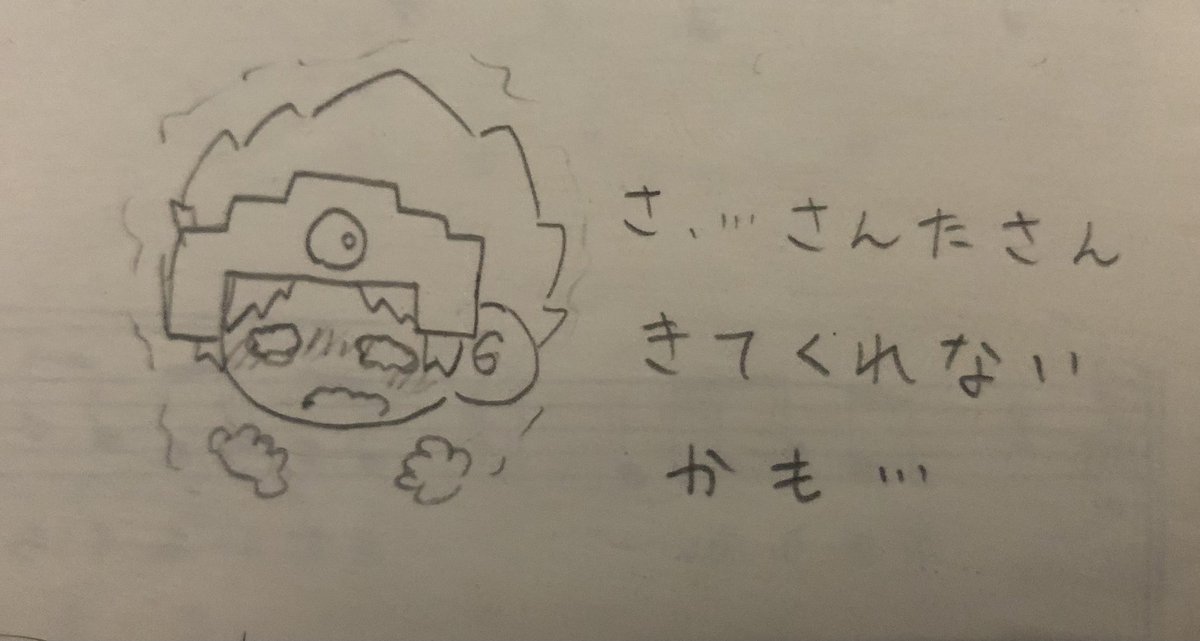 さ、…さんたさん
きてくれない
かも…